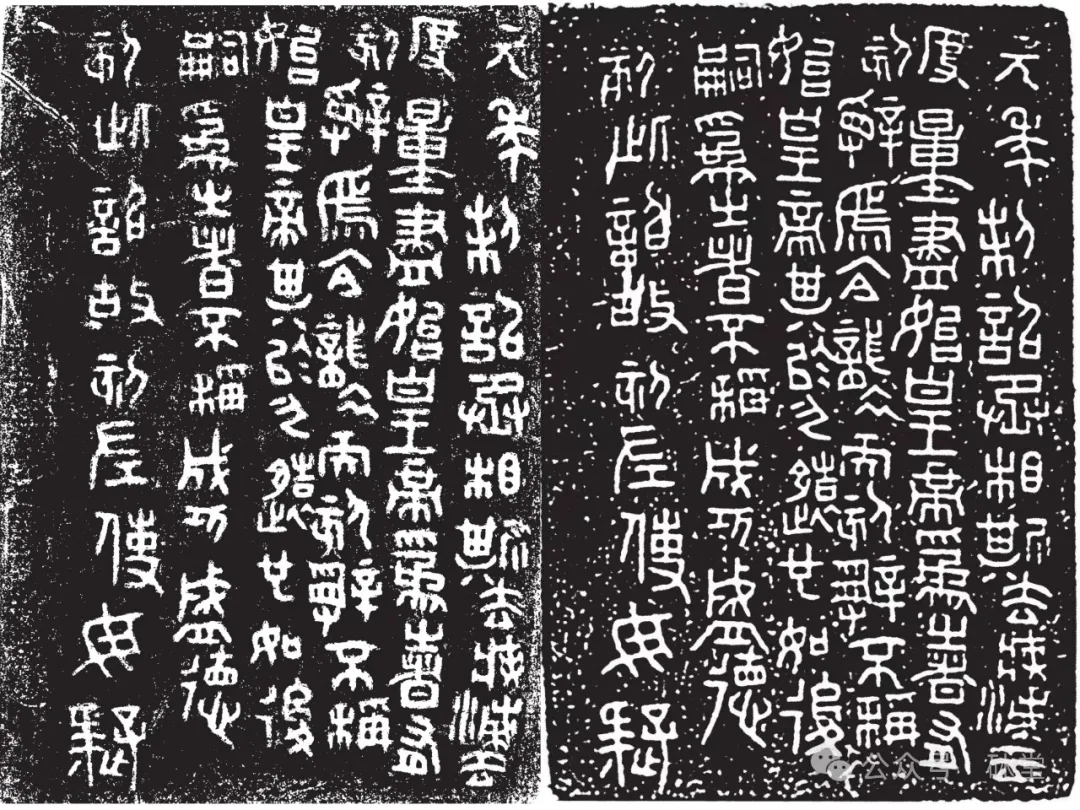 元年制詔丞相斯去疾灋
度量盡始皇帝為之皆有
刻辭焉今襲號而刻辭不稱
始皇帝其於久遠也如後
嗣為之者不稱成功盛德
刻此詔故刻左使毋疑
元年制詔丞相斯去疾灋
度量盡始皇帝為之皆有
刻辭焉今襲號而刻辭不稱
始皇帝其於久遠也如後
嗣為之者不稱成功盛德
刻此詔故刻左使毋疑
公众号